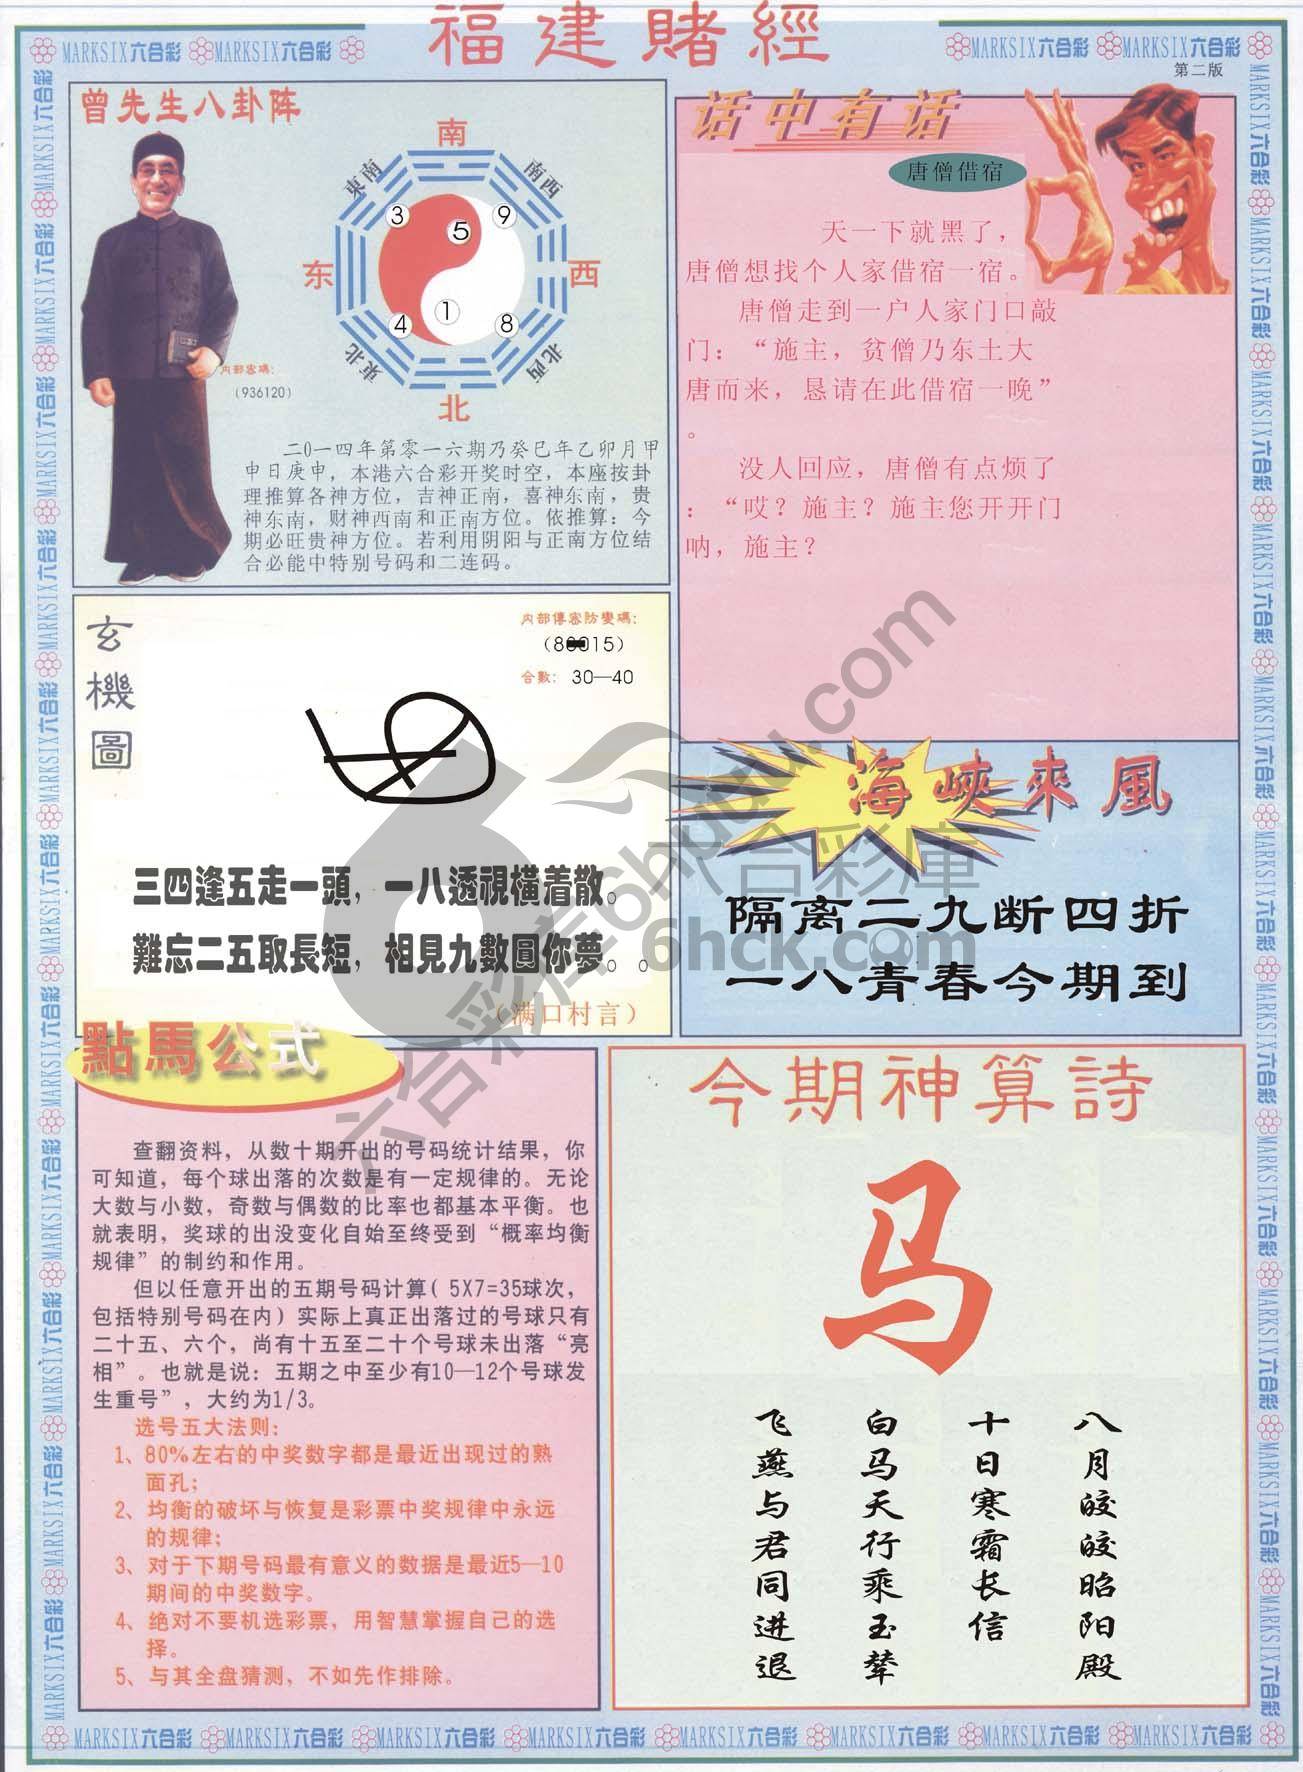 福建賭經
MARKSIX六合彩 MARKSIX六合彩
MARKSIX六合彩 MARKSIX六合彩
第二版
曾先生八卦阵
南
東南
南西
3
5
9
东
西
4
1
8
東北
北西
北
内部密碼：
（936120）
二0一四年第零一六期乃癸巳年乙卯月甲
申日庚申，本港六合彩开奖时空，本座按卦
理推算各神方位，吉神正南，喜神东南，贵
神东南，财神西南和正南方位。依推算：今
期必旺贵神方位。若利用阴阳与正南方位结
合必能中特别号码和二连码。
话中有话
唐僧借宿
天一下就黑了，
唐僧想找个人家借宿一宿。
唐僧走到一户人家门口敲
门：“施主，贫僧乃东土大
唐而来，恳请在此借宿一晚”
。
没人回应，唐僧有点烦了
：“哎？施主？施主您开开门
呐，施主？
玄機圖
内部傳密防變碼：
合數：30—40
三四逢五走一頭，一八透視橫着散。
難忘二五取長短，相見九數圓你夢。。
（满口村言）
海峽來風
隔离二九断四折
一八青春今期到
點馬公式
查翻资料，从数十期开出的号码统计结果，你
可知道，每个球出落的次数是有一定规律的。无论
大数与小数，奇数与偶数的比率也都基本平衡。也
就表明，奖球的出没变化自始至终受到“概率均衡
规律”的制约和作用。
但以任意开出的五期号码计算（5X7=35球次，
包括特别号码在内）实际上真正出落过的号球只有
二十五、六个，尚有十五至二十个号球未出落“亮
相”。也就是说：五期之中至少有10—12个号球发
生重号”，大约为1/3。
选号五大法则：
1、80%左右的中奖数字都是最近出现过的熟
面孔；
2、均衡的破坏与恢复是彩票中奖规律中永远
的规律；
3、对于下期号码最有意义的数据是最近5—10
期间的中奖数字。
4、绝对不要机选彩票，用智慧掌握自己的选
择。
5、与其全盘猜测，不如先作排除。
今期神算詩
马
八月皎皎昭阳殿
十日寒霜长信
白马天行乘玉辇
飞燕与君同进退
六合彩库6hdudu.com
六合彩庫
6hck.com
MARKSIX六合彩 MARKSIX六合彩 MARKSIX六合彩 MARKSIX六合彩 MARKSIX六合彩 MARKSIX六合彩 MARKSIX六合彩 MARKSIX六合彩